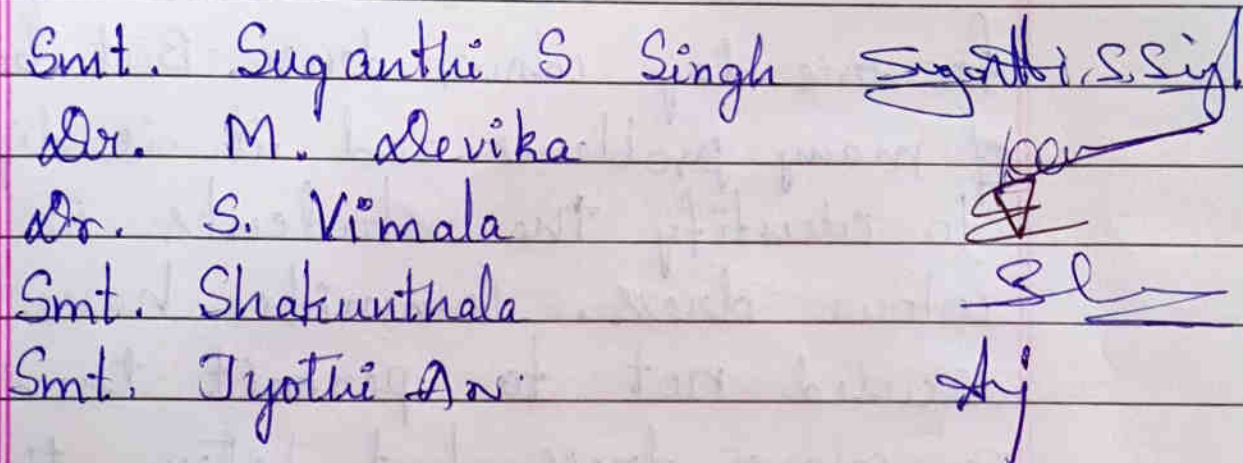 Smt. Suganthi S Singh Suganthi.S.Singh
Dr. M. Devika
Dr. S. Vimala
Smt. Shakunthala
Smt. Jyothi An.